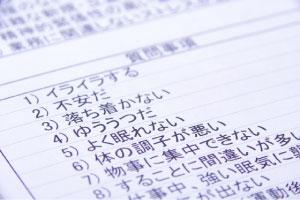 業務に間違いし
質問事項
1) イライラする
2) 不安だ
3) 落ち着かない
4) ゆううつだ
5) よく眠れない
6) 体の調子が悪い
7) 物事に集中できない
8) することに間違いが多い
仕事中、強い眠気に